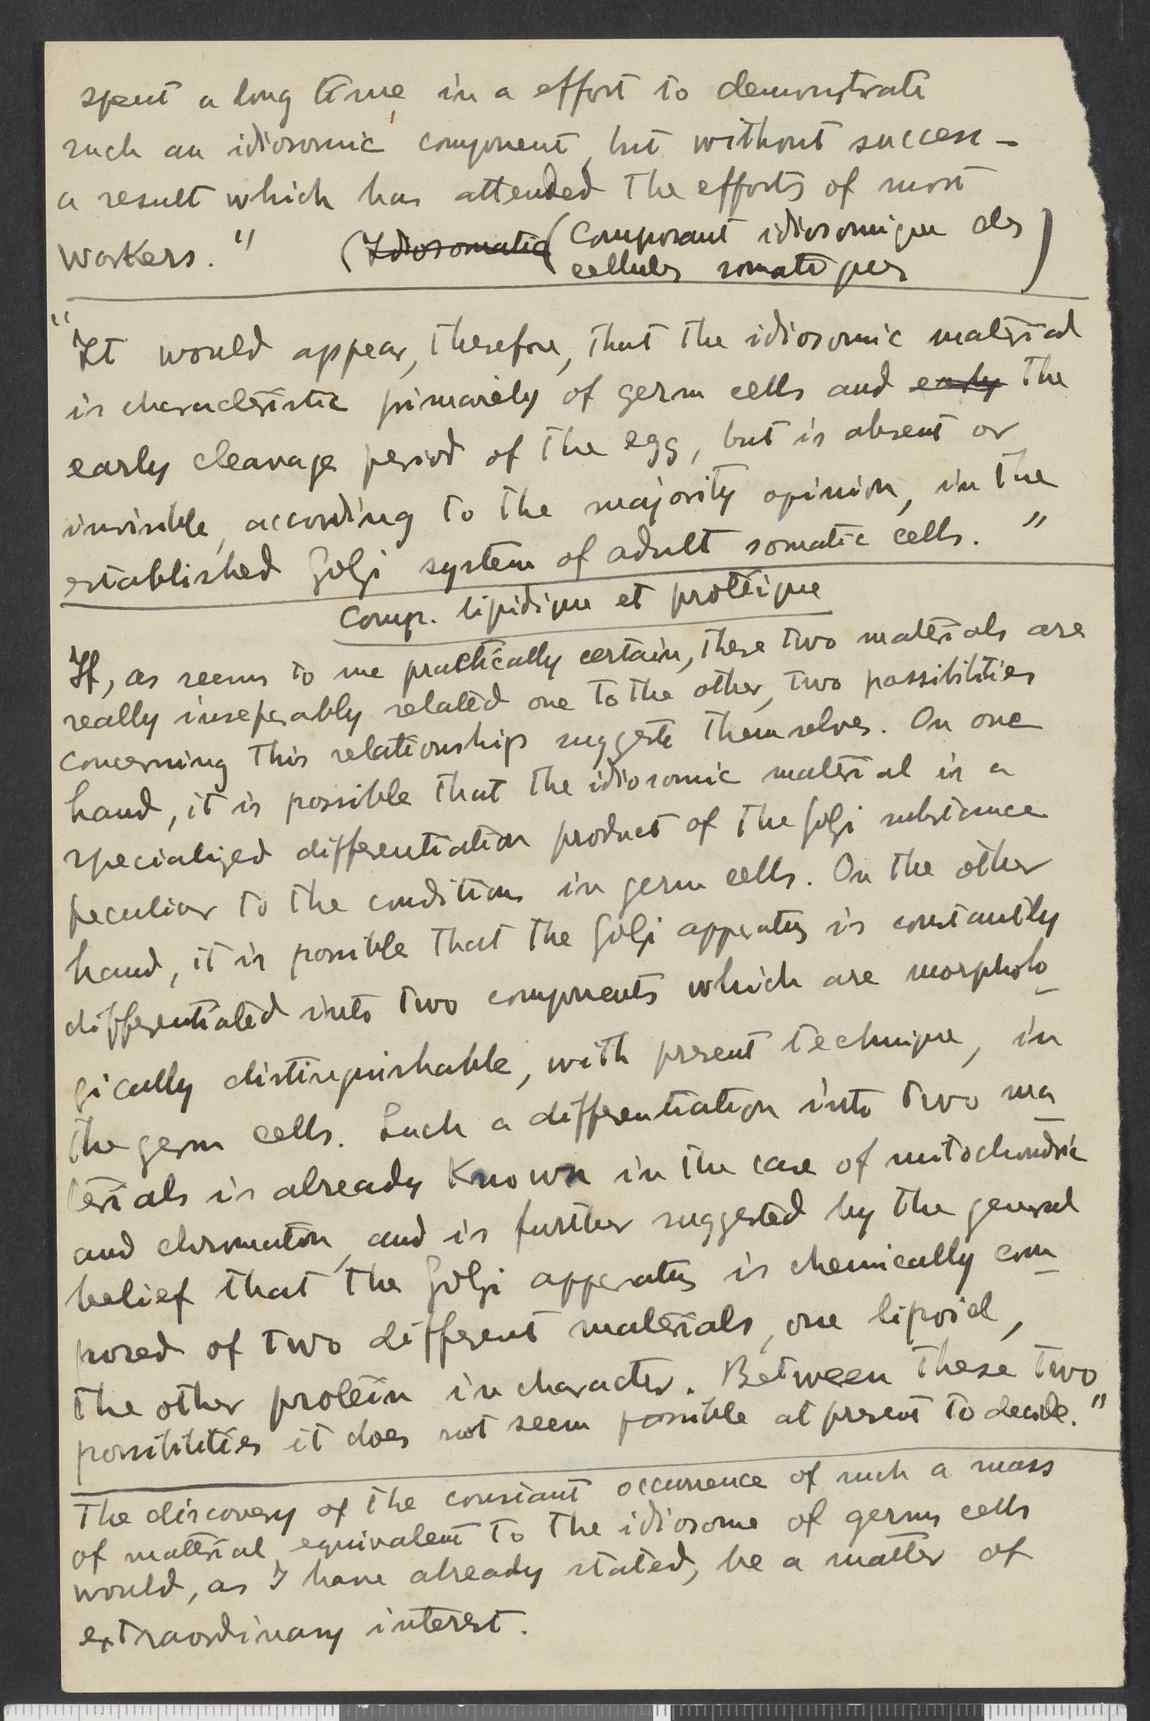 spent a long time in a effort to demonstrate
such an idiosomic component, but without success –
a result which has attended the efforts of most
workers." (Idiosomatic (Composant idiosomique des
cellules somatiques)
"It would appear, therefore, that the idiosomic material
is characteristic primarily of germ cells and early the
early cleavage period of the egg, but is absent or
invisible, according to the majority opinion, in the
established Golgi system of adult somatic cells."
Comp. lipidique et protéique
If, as seems to me practically certain, these two materials are
really inseperably related one to the other, two possibilities
concerning this relationship suggest themselves. On one
hand, it is possible that the idiosomic material is a
specialized differentiation product of the Golgi substance
peculiar to the conditions in germ cells. On the other
hand, it is possible that the Golgi apparatus is constantly
differentiated into two components which are morpholo-
gically distinguishable, with present technique, in
the germ cells. Such a differentiation into two ma-
terials is already known in the case of mitochondria
and chromatin, and is further suggested by the general
belief that the Golgi apparatus is chemically com-
posed of two different materials, one lipoid,
the other protein in character. Between these two
possibilities it does not seem possible at present to decide."
The discovery of the constant occurrence of such a mass
of material, equivalent to the idiosome of germ cells
would, as I have already stated, be a matter of
extraordinary interest.